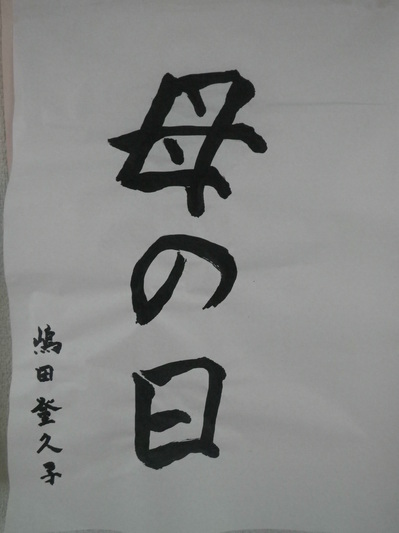 母の日
嶋田登久子